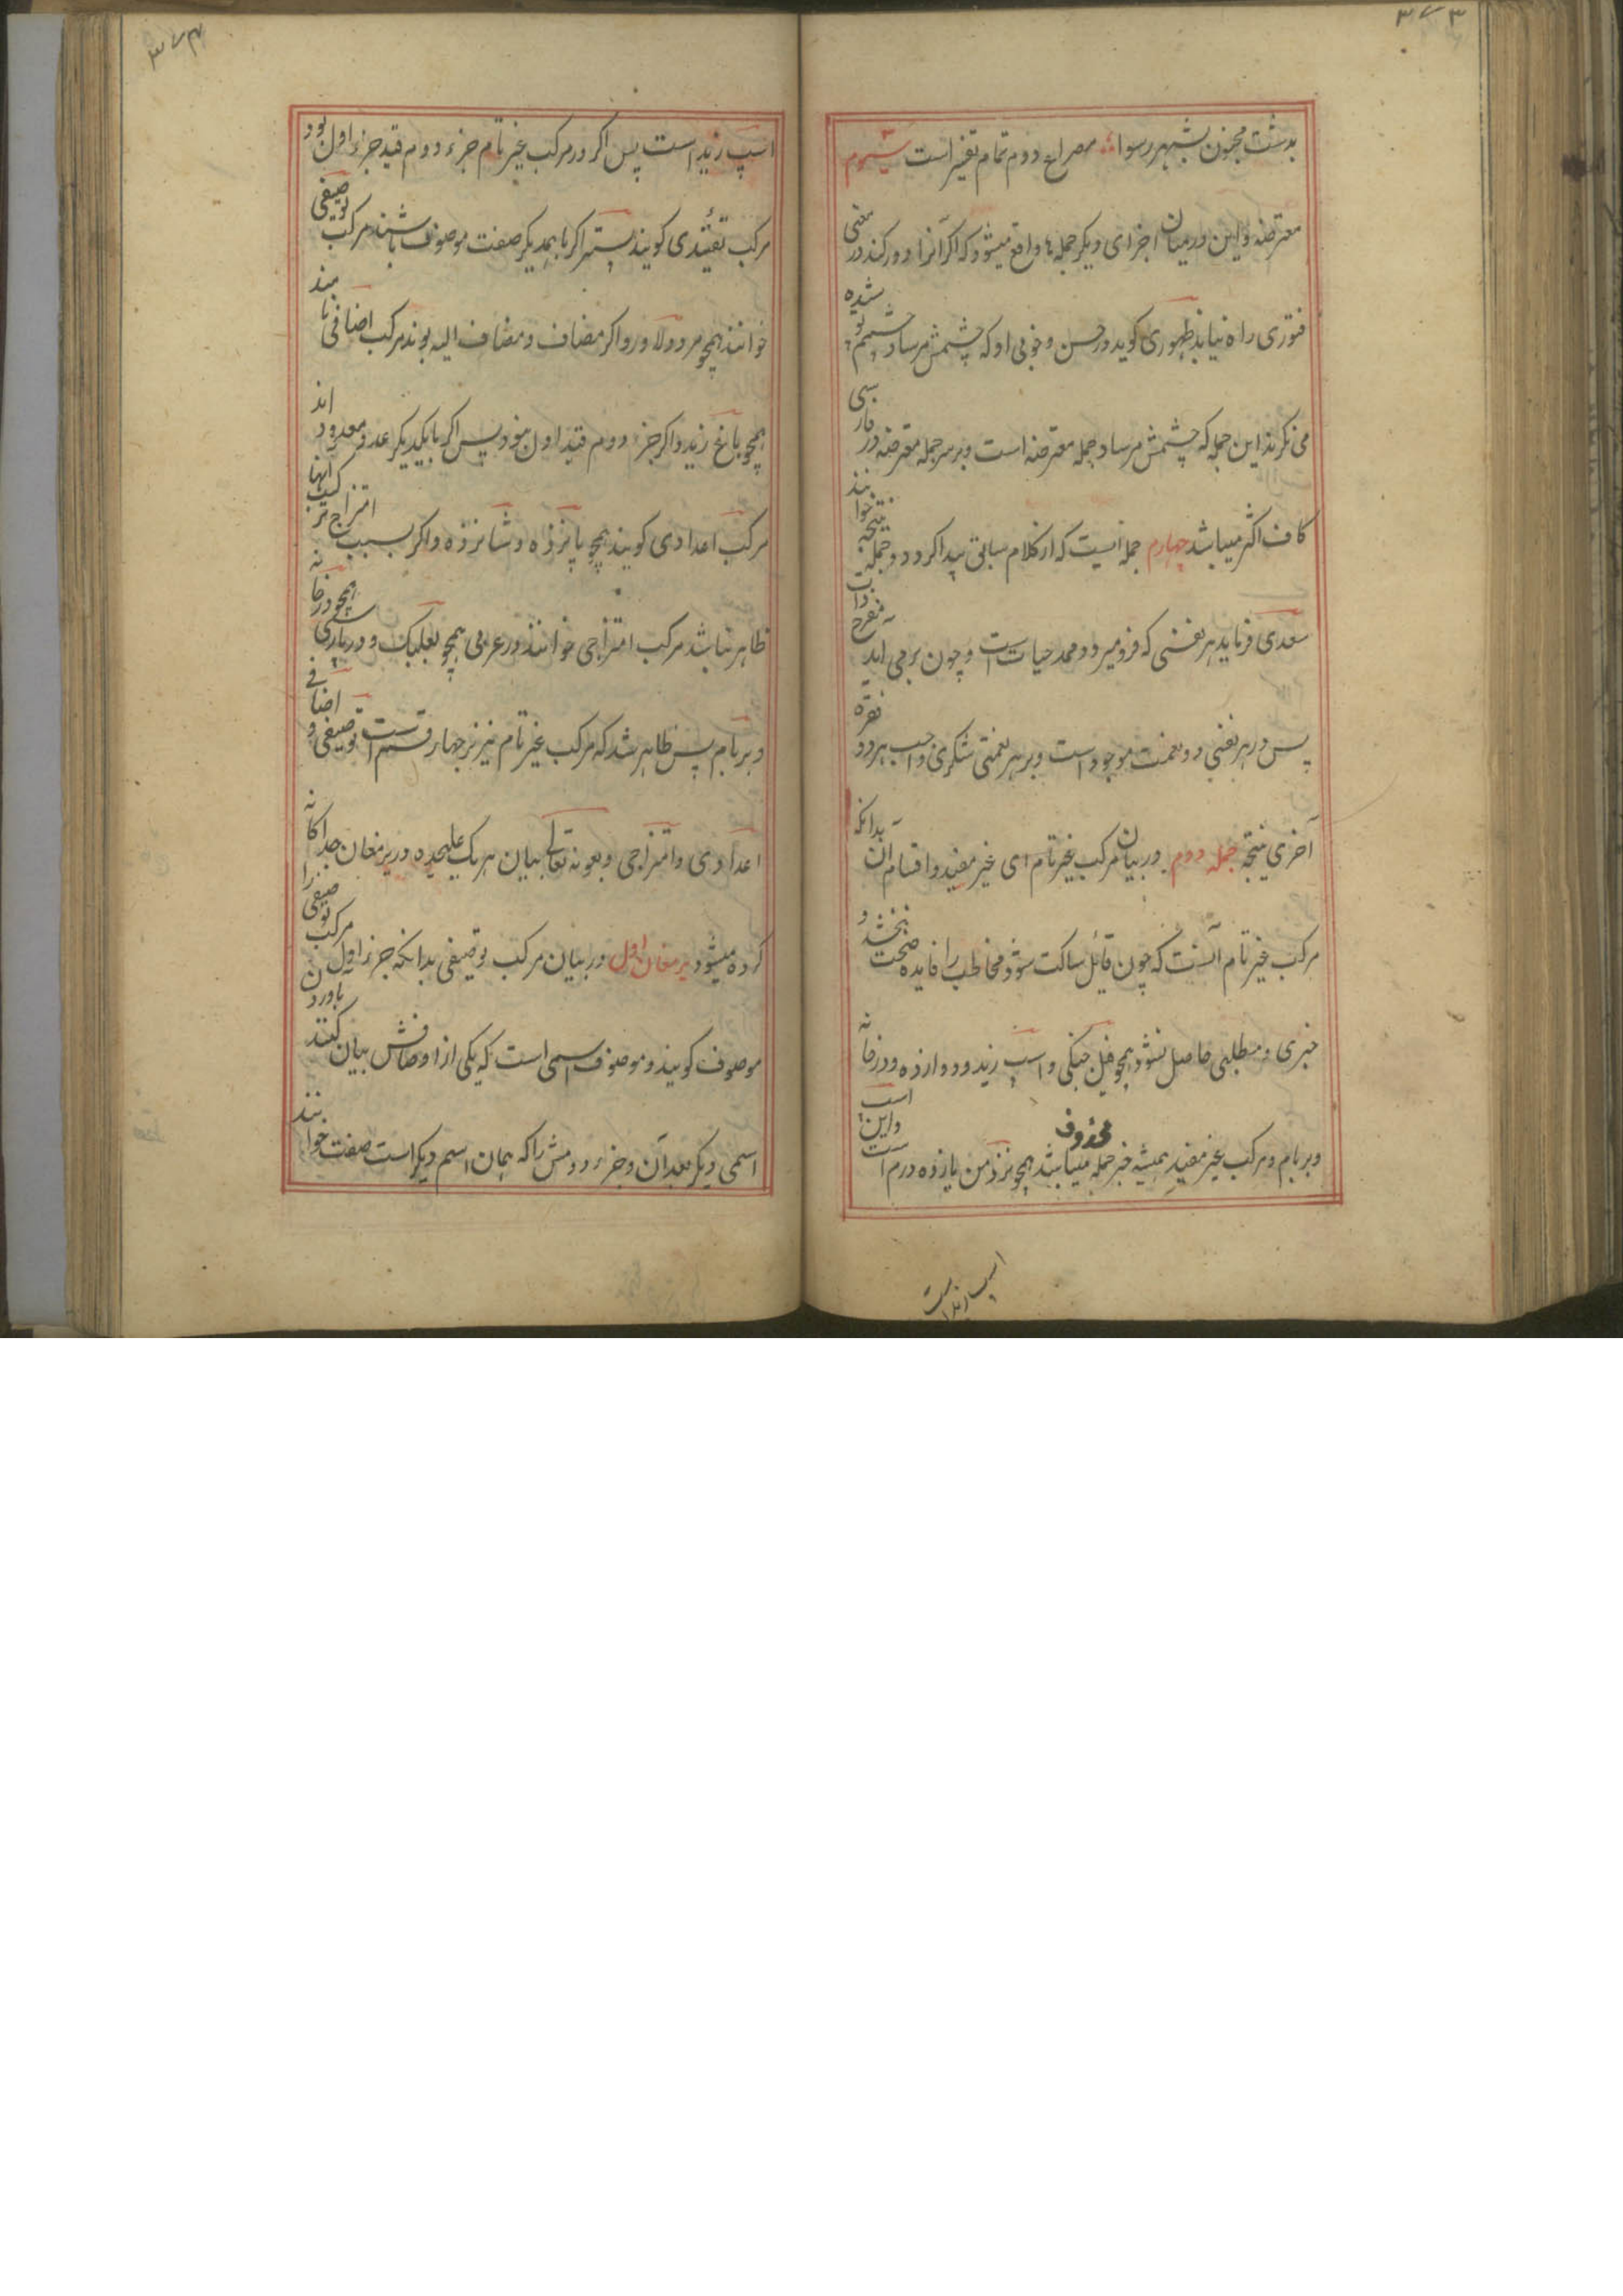 ۳۷۳
بدشت مجنون بشهر رسوا مصراع دوم تمام تفسیر است سیوم
معترضه و این درمیان اجزای دیگر جمله‌ها واقع میشود که اگر آنرا دور کنند در معنی
فتوری راه نیابد ظهوری کوید در حسن و خوبی او که چشمش مرساد چشم بو شده
می نکرند این جمله که چشمش مرساد جمله معترضه است و بر سر جمله معترضه در فارسی
کاف اکثر میباشد چهارم جمله ایست که از کلام سابق پیدا کردد و جمله نتیجه خوانند
سعدی فرماید هر نفسی که فرو میرود ممد حیات است و چون برمی اید مفرح ذات
پس در هر نفسی دو نعمت موجود است و بر هر نعمتی شکری واجب هر دو فقره
آخری نتیجه جمله دوم در بیان مرکب غیر تام ای غیر مفید و اقسام ان بدانکه
مرکب غیر تام آنست که چون قائل ساکت شود مخاطب را فایده صحت نبخشد و
خبری و مطلبی حاصل نشود همچو فیل جنکی و اسپ زید و دوازده و درخانه
و بربام و مرکب غیر مفید همیشه خبر جمله میباشد همچو نزد من یازده درم است و این
محذوف است
اسپ زید است
۳۷۴
اسپ زید است پس اکر در مرکب غیر تام جزء دوم قید جزء اول بود
مرکب تقئیدی کویند پستر اکر باهمدیکر صفت موصوف باشند مرکب توصیفی
خوانند همچو مرد دلاور و اکر مضاف و مضاف الیه بوند مرکب اضافی نامند
همچو باغ زید و اکر جزء دوم قید اول نبود پس اکر بایکدیکر عدد معدود اند
مرکب اعدادی کویند همچو پانزده و شانزده و اکر بسبب امتزاج ترکیب آنها
ظاهر نباشد مرکب امتزاجی خوانند در عربی همچو بعلبک و در پارسی همچو درخانه
و بربام پس ظاهر شد که مرکب غیر تام نیز بر چهار قسم است توصیفی و اضافی
اعدادی و امتزاجی و بعونه تعالی بیان هر یک علیحده در یرمغان جداکانه
کرده میشود یرمغان اول در بیان مرکب توصیفی بدانکه جزء اول مرکب توصیفی را
موصوف کویند و موصوف اسمی است که یکی از اوصافش بیان کنند باوردن
اسمی دیکر بعد آن و جزء دومش را که همان اسم دیکر است صفت خوانند